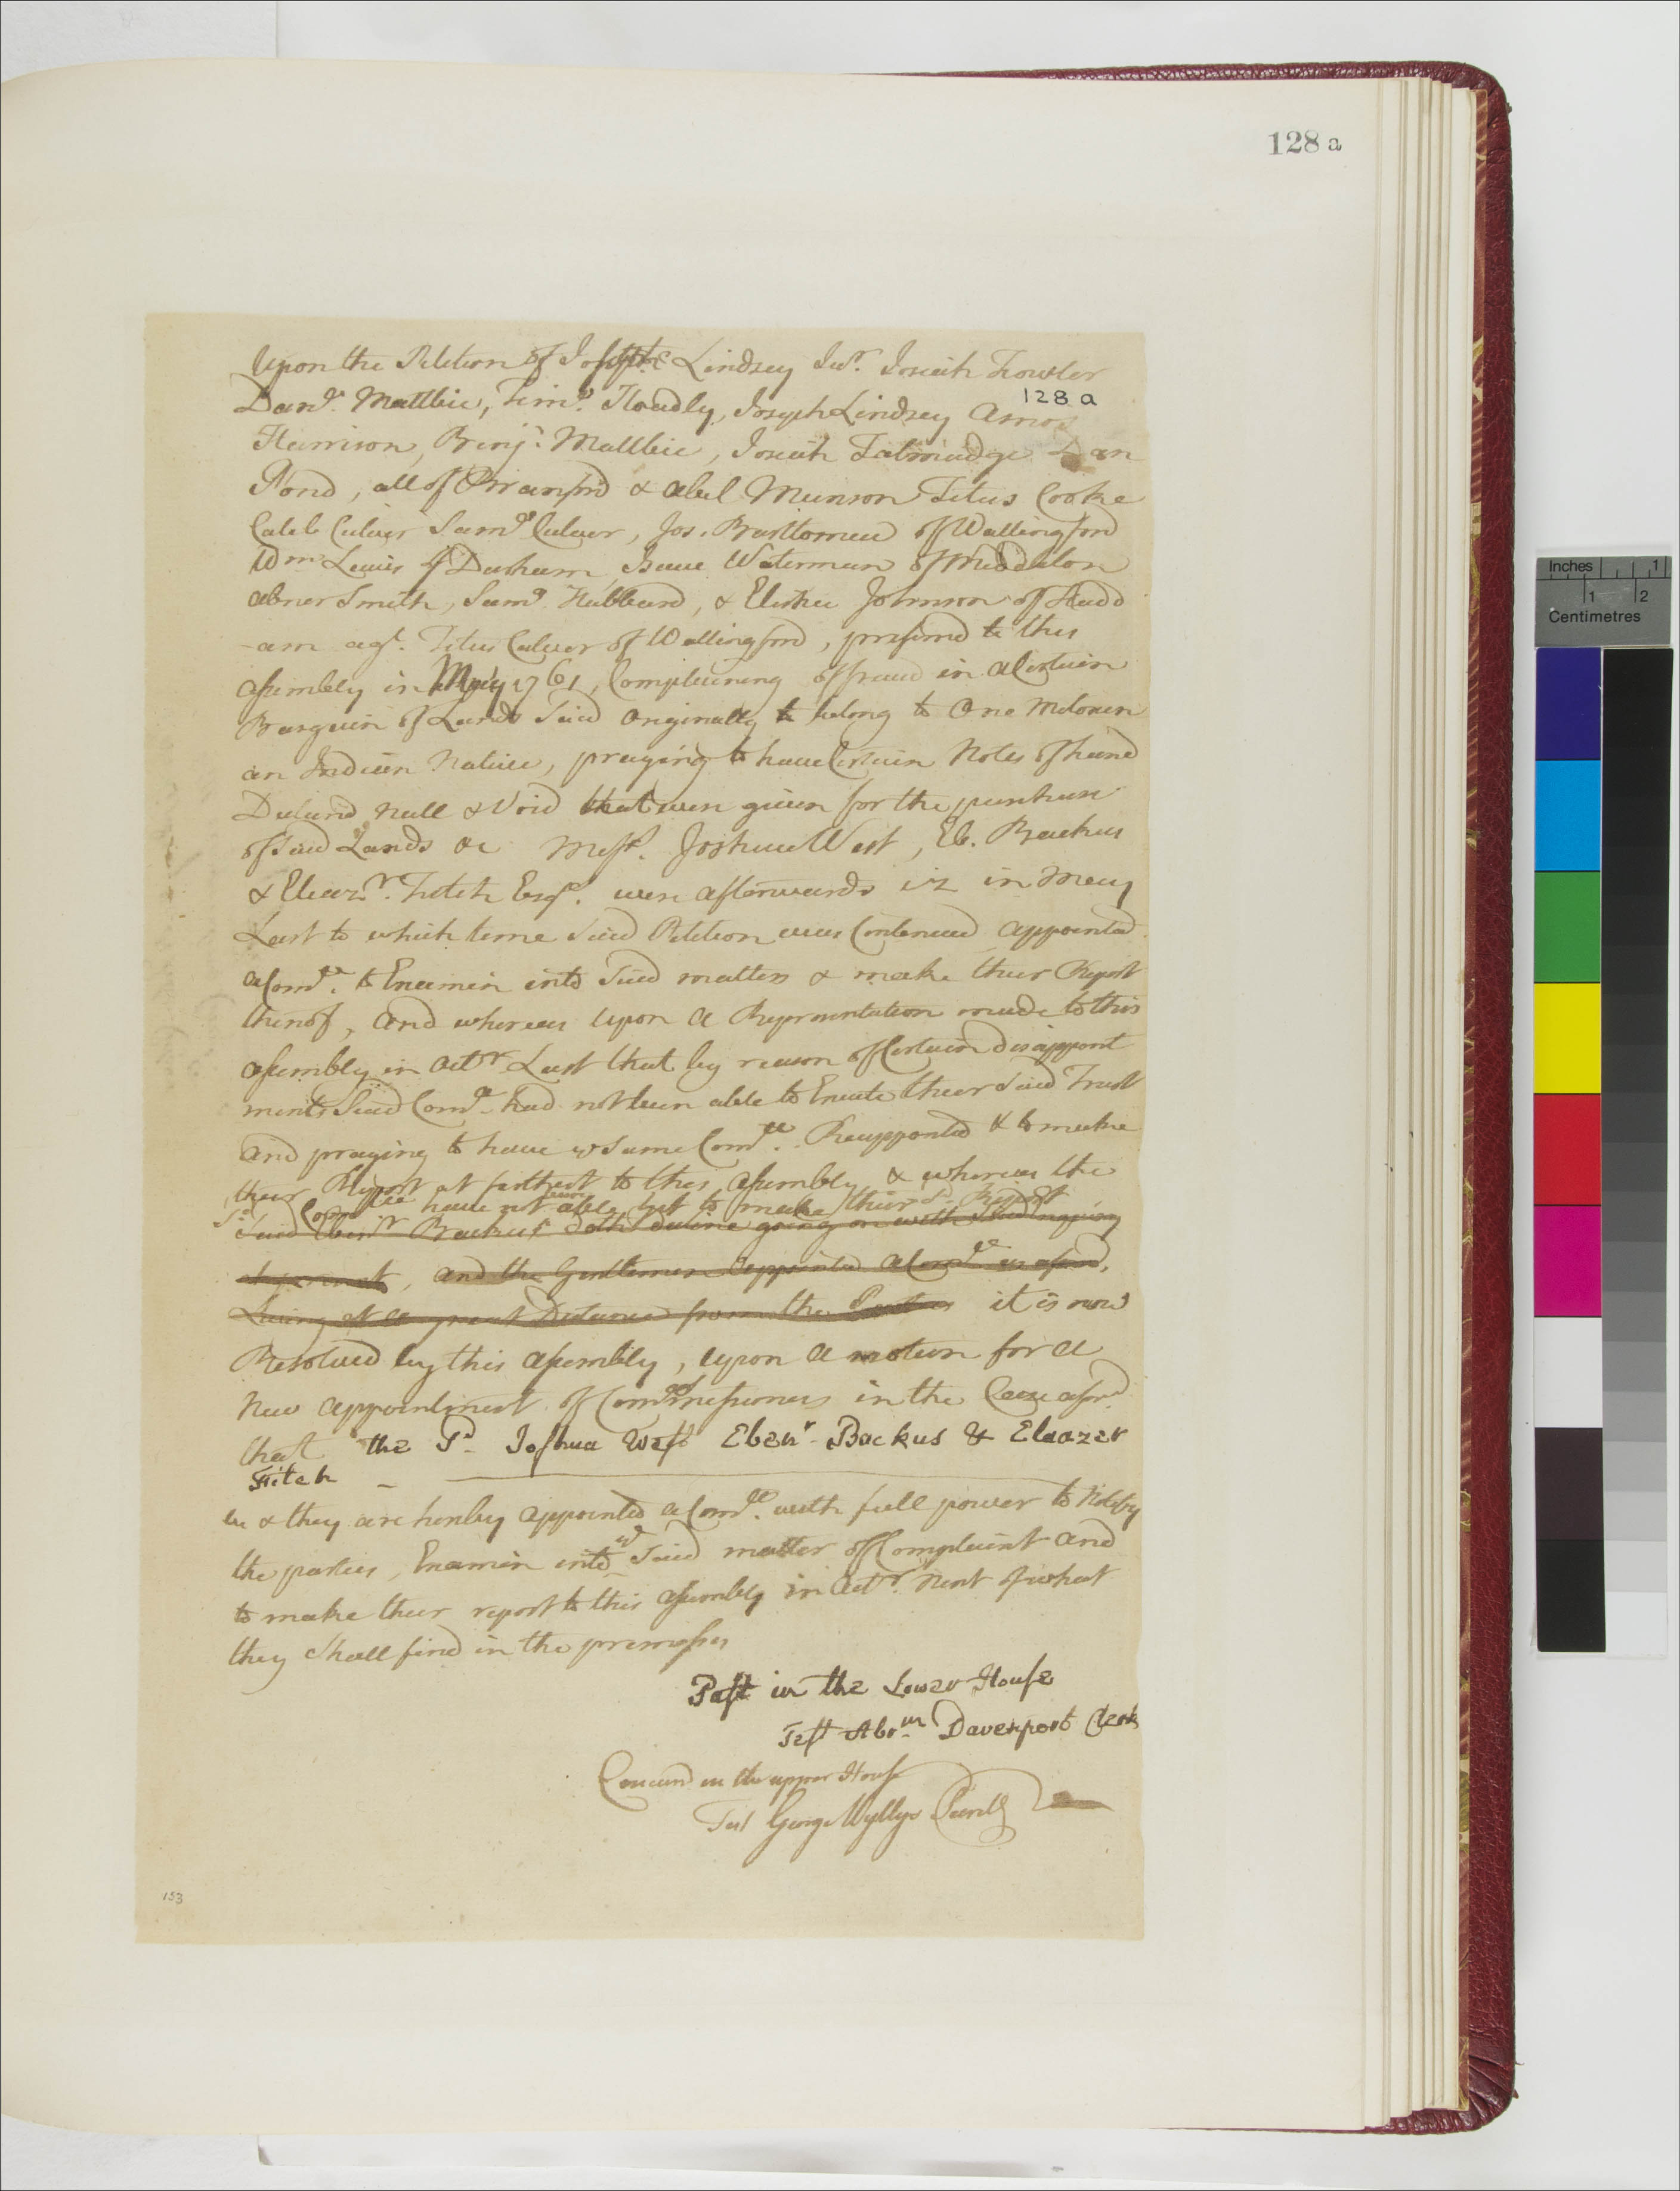 128 a
Upon the Petition of Joseph Lindsey Jur. Josiah Fowler
Danll. Maltbie, Timo. Hoadly, Joseph Lindsey Amos
128 a
Harrison, Benja. Maltbie, Josiah Talmadge Dan
Pond, all of Branford & Abel Munson Titus Cooke
Caleb Culver Samll Culver, Jos. Bartlomew of Wallingford
Wm Lewis of Durham Isaac Waterman of Middleton
Abner Smith, Samll Hubbard, & Elisha Johnson of Hadd
-am agt. Titus Culver of Wallingford, prefered to this
Assembly in May 1761, Complaining of fraud in a Certain
Bargain of Lands Said Originally to belong to One
an Indian Native, praying to have Certain Notes of hand
Declard Null & Void that were given for the purchase
of Said Lands &c Messr. Joshua West, Eb. Backus
& Eleazr. Fitch Esqr. were afterwards viz in May
Last to which time Said Petition was Continued appointed
a Comtee. to Examin into Said matters & make their Report
thereof, and whereas upon a Representation made to this
Assembly in Octr Last that by reason of Certain disappoint
ments Said Comtee had not been able to Execute their Said Trust
and praying to have ye Same Comtee. Reappointed & to make
their Report at farthest to this Assembly & whereas the
Sd. Comtee have not been able yet to make their Sd. Report
Said Ebenr Backus doth decline going on with Said Inquiry
, and the Gentlemen appointed a Comtee as aforsd,
Living at a great Distance from the Parties it is now
Resolved by this Assembly, upon a motion for a
New appointment of Commissioners in the Case aforsd
that the Sd Joshua West Ebenr Backus & Eleazer
Fitch
be & they are hereby appointed a Comtee. with full power to Notify
the parties, Examin into ye Said matter of Complaint and
to make their report to this Assembly in Octr. Next of what
they Shall find in the premisses
Past in the Lower House
Test Abrm Davenport Clerk
Concurd in the upper House
Test George Wyllys Secrety
153